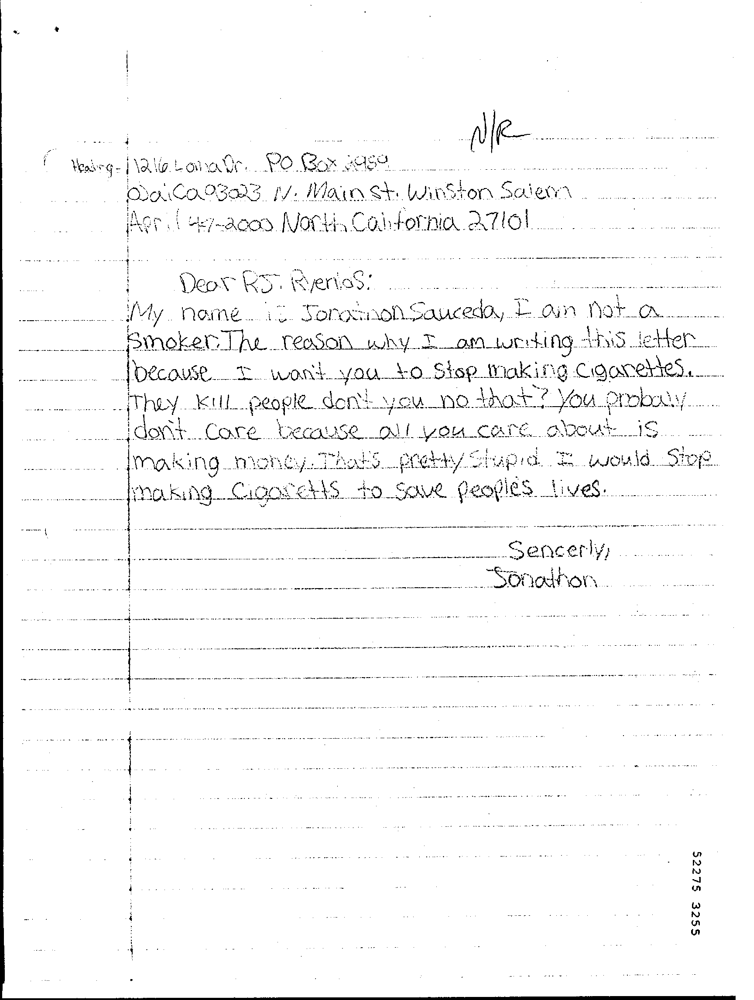 N/R
Heading- 1216 Loma Dr. PO Box 2959
Ojai Ca 93023 N. Main St. Winston Salem
April 4-7-2000 North California 27101
Dear RJ. Ryenios:
My name is Jonathon Sauceda, I am not a
smoker. The reason why I am writing this letter
because I want you to stop making cigarettes.
They kill people don't you no that? You probaly
don't care because all you care about is
making money. That's pretty stupid I would stop
making Cigaretts to save people's lives.
Sencerly,
Jonathon
52275 3255